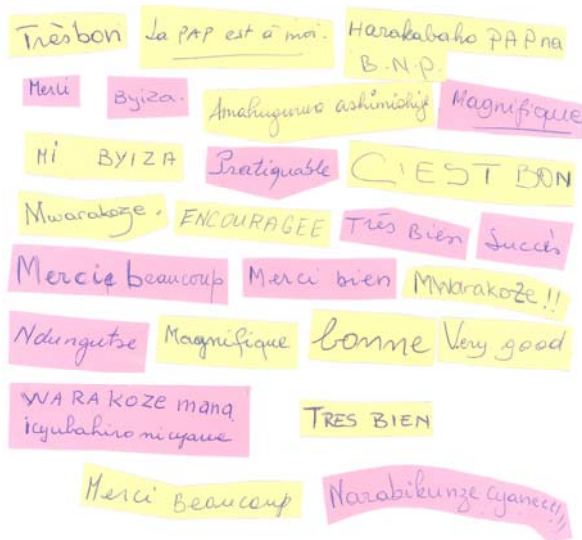 Très bon
La PAP est à moi.
Harakabaho PAP na
B.N.P.
Merli
Byiza.
Amahugurwa ashimishije.
Magnifique
Mi BYIZA
Pratiquable
C'EST BON
Mwarakoze.
ENCOURAGEE
Très Bien
Succès
Mercie beaucoup
Merci bien
MWarakoze!!
Ndungutse
Magnifique
bonne
Very good
WARAKOZE mana
icyubahiro nicyawe
TRES BIEN
Merci Beaucoup
Narabikunze cyane!!!